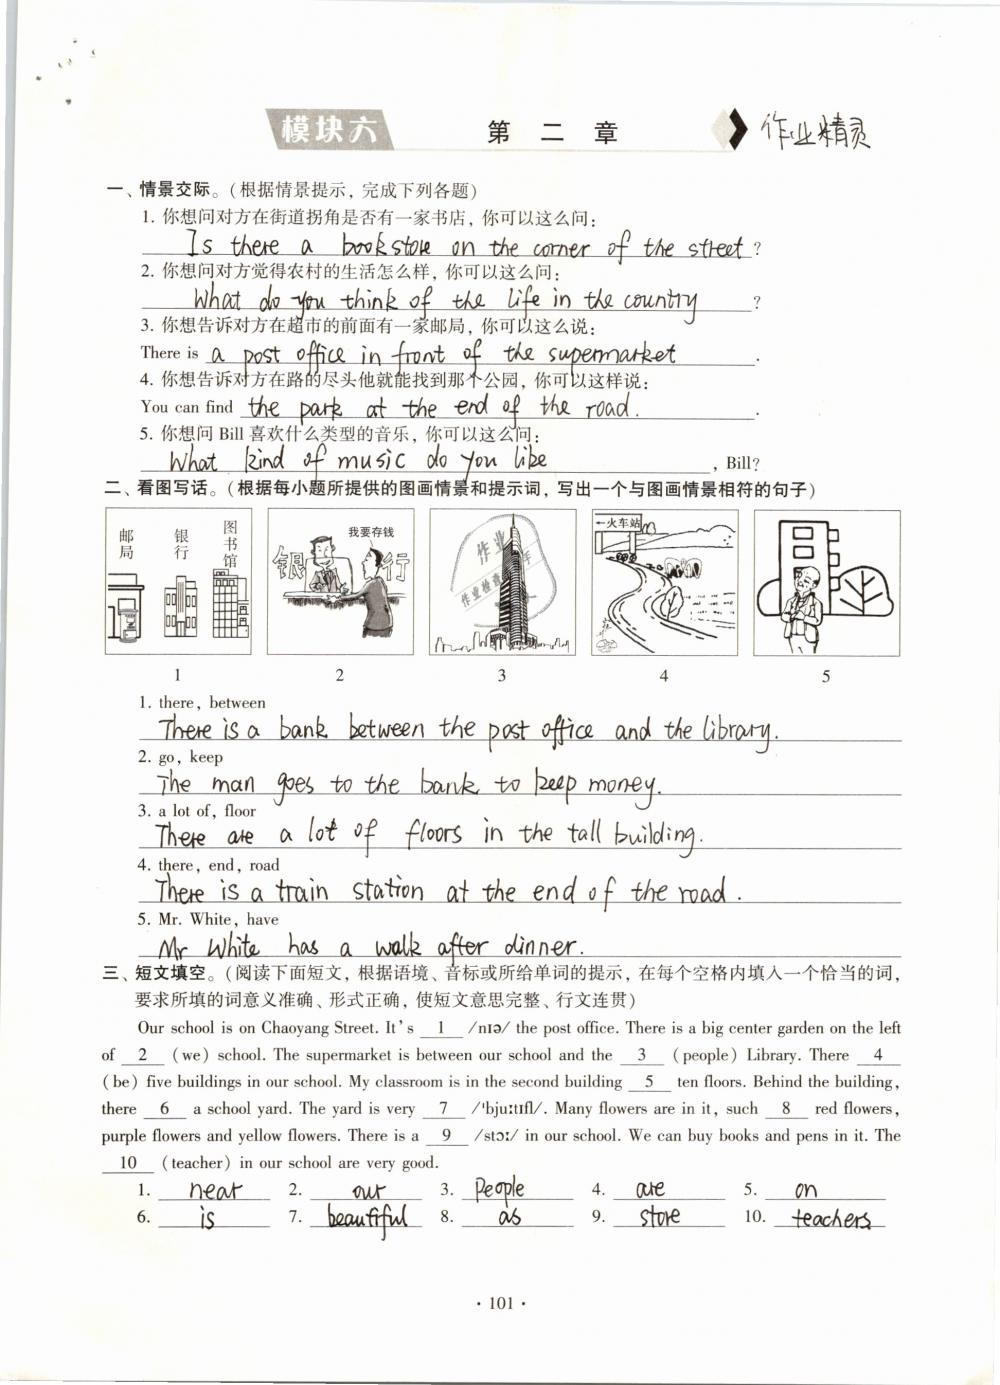 模块六 第二章 作业精灵
一、情景交际。(根据情景提示, 完成下列各题)
1. 你想问对方在街道拐角是否有一家书店, 你可以这么问:
Is there a bookstore on the corner of the street ?
2. 你想问对方觉得农村的生活怎么样, 你可以这么问:
What do you think of the life in the country ?
3. 你想告诉对方在超市的前面有一家邮局, 你可以这么说:
There is a post office in front of the supermarket .
4. 你想告诉对方在路的尽头他就能找到那个公园, 你可以这样说:
You can find the park at the end of the road. .
5. 你想问 Bill 喜欢什么类型的音乐, 你可以这么问:
What kind of music do you like , Bill?
二、看图写话。(根据每小题所提供的图画情景和提示词, 写出一个与图画情景相符的句子)
邮局 银行 图书馆
我要存钱
银行
作业
作业检查
←火车站
1 2 3 4 5
1. there, between
There is a bank between the post office and the library.
2. go, keep
The man goes to the bank to keep money.
3. a lot of, floor
There are a lot of floors in the tall building.
4. there, end, road
There is a train station at the end of the road.
5. Mr. White, have
Mr White has a walk after dinner.
三、短文填空。(阅读下面短文, 根据语境、音标或所给单词的提示, 在每个空格内填入一个恰当的词,
要求所填的词意义准确、形式正确, 使短文意思完整、行文连贯)
Our school is on Chaoyang Street. It's 1 /nɪə/ the post office. There is a big center garden on the left
of 2 (we) school. The supermarket is between our school and the 3 (people) Library. There 4
(be) five buildings in our school. My classroom is in the second building 5 ten floors. Behind the building,
there 6 a school yard. The yard is very 7 /ˈbjuːtɪfl/. Many flowers are in it, such 8 red flowers,
purple flowers and yellow flowers. There is a 9 /stɔː/ in our school. We can buy books and pens in it. The
10 (teacher) in our school are very good.
1. near 2. our 3. People 4. are 5. on
6. is 7. beautiful 8. as 9. store 10. teachers
· 101 ·